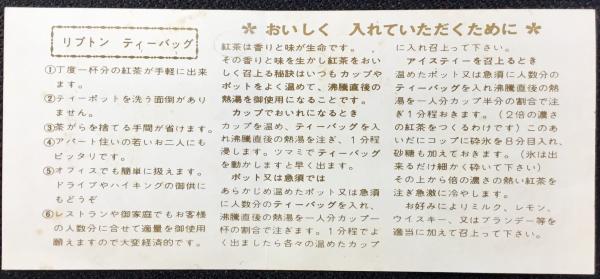 リプトン ティーバッグ
①丁度一杯分の紅茶が手軽に出来
ます。
②ティーポットを洗う面倒があり
ません。
③茶がらを捨てる手間が省けます。
④アパート住いの若いお二人にも
ピッタリです。
⑤オフィスでも簡単に扱えます。
ドライブやハイキングの御供に
もどうぞ
⑥レストランや御家庭でもお客様
の人数分に合せて適量を御使用
願えますので大変経済的です。
＊ おいしく 入れていただくために ＊
紅茶は香りと味が生命です。
その香りと味を生かし紅茶をおい
しく召上る秘訣はいつもカップや
ポットをよく温めて、沸騰直後の
熱湯を御使用になることです。
カップでおいれになるとき
カップを温め、ティーバッグを入
れ沸騰直後の熱湯を注ぎ、1分程
浸します。ツマミでティーバッグ
を動かしますと早く出ます。
ポット又は急須では
あらかじめ温めたポット又は急須
に人数分のティーバッグを入れ、
沸騰直後の熱湯を一人分カップ一
杯の割合で注ぎます。1分程でよ
く出ましたら各々の温めたカップ
に入れ召上って下さい。
アイスティーを召上るとき
温めたポット又は急須に人数分の
ティーバッグを入れ沸騰直後の熱
湯を一人分カップ半分の割合で注
ぎ1分程おきます。（2倍の濃さ
の紅茶をつくるわけです）このあ
いだにコップに砕氷を8分目入れ、
砂糖も加えておきます。（氷は出
来るだけ細かく砕いて下さい）
その上から倍の濃さの熱い紅茶を
注ぎ急激に冷やします。
お好みによりミルク、レモン、
ウイスキー、又はブランデー等を
適当に加えて召上って下さい。